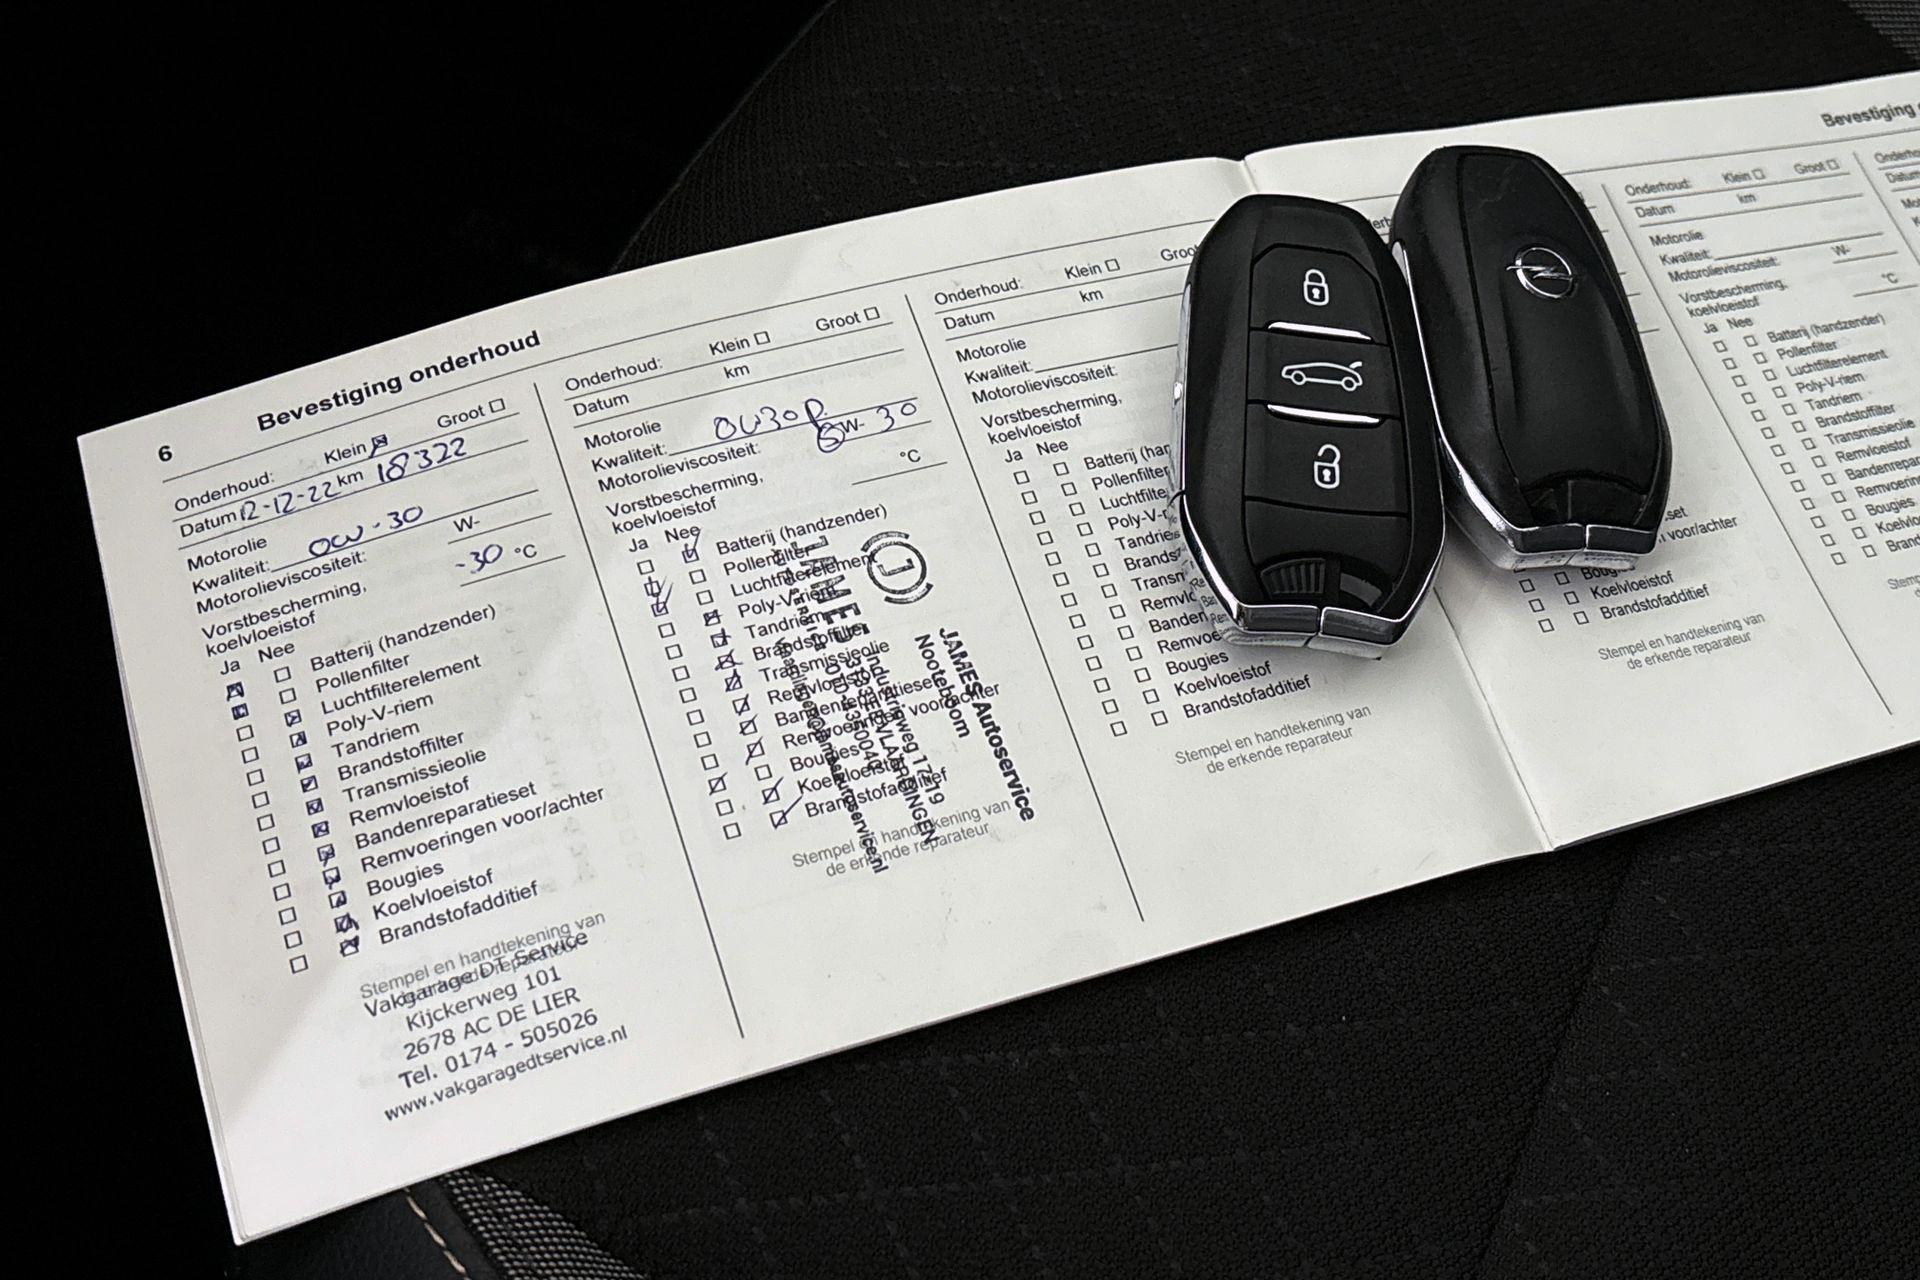 6
Bevestiging onderhoud
Onderhoud: Klein Groot
Datum 12-12-22 km 18322
Motorolie
Kwaliteit: OW-30
Motorolieviscositeit: W-
Vorstbescherming, -30 °C
koelvloeistof
Ja Nee
Batterij (handzender)
Pollenfilter
Luchtfilterelement
Poly-V-riem
Tandriem
Brandstoffilter
Transmissieolie
Remvloeistof
Bandenreparatieset
Remvoeringen voor/achter
Bougies
Koelvloeistof
Brandstofadditief
Stempel en handtekening van
de erkende reparateur
Vakgarage DT Service
Kijckerweg 101
2678 AC DE LIER
Tel. 0174 - 505026
www.vakgaragedtservice.nl
Onderhoud: Klein Groot
Datum km
Motorolie
Kwaliteit: OW30P
Motorolieviscositeit: 0W- 30
Vorstbescherming, °C
koelvloeistof
Ja Nee
Batterij (handzender)
Pollenfilter
Luchtfilterelement
Poly-V-riem
Tandriem
Brandstoffilter
Transmissieolie
Remvloeistof
Bandenreparatieset
Remvoeringen voor/achter
Bougies
Koelvloeistof
Brandstofadditief
Stempel en handtekening van
de erkende reparateur
JAMES Autoservice
Nooteboom
Industrieweg 17-19
VLAARDINGEN
Onderhoud: Klein Groot
Datum km
Motorolie
Kwaliteit:
Motorolieviscositeit:
Vorstbescherming,
koelvloeistof
Ja Nee
Batterij (han
Pollenfilter
Luchtfilte
Poly-V-r
Tandrie
Brands
Transm
Remvlo
Banden
Remvoe
Bougies
Koelvloeistof
Brandstofadditief
Stempel en handtekening van
de erkende reparateur
set
voor/achter
Bougies
Koelvloeistof
Brandstofadditief
Stempel en handtekening van
de erkende reparateur
Bevestiging
Onderhoud: Klein Groot
Datum km
Motorolie
Kwaliteit: W-
Motorolieviscositeit:
Vorstbescherming, °C
koelvloeistof
Ja Nee
Batterij (handzender)
Pollenfilter
Luchtfilterelement
Poly-V-riem
Tandriem
Brandstoffilter
Transmissieolie
Remvloeistof
Bandenrepar
Remvoering
Bougies
Koelvlo
Brand